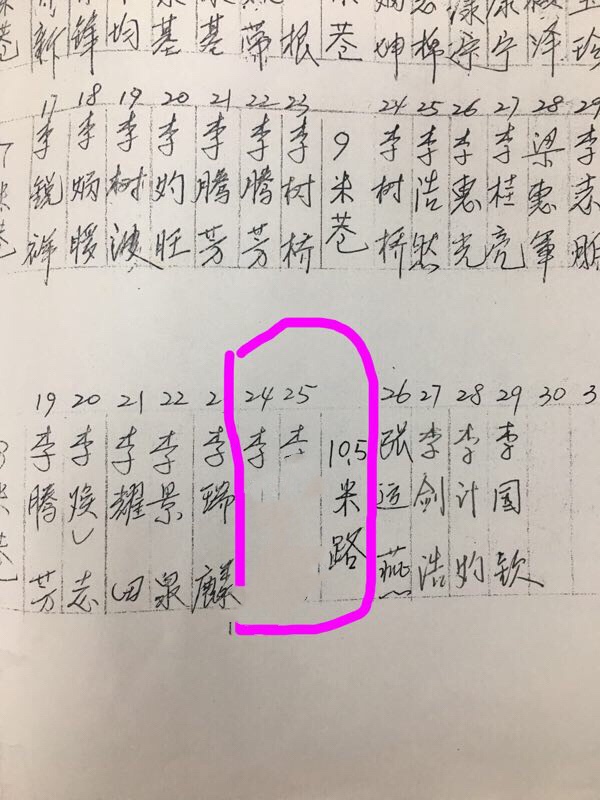 新
锋
均
基
基
荣
根
巷
坤
棉
宁
泽
珍
17 18 19 20 21 22 23 24 25 26 27 28 29
7米巷
李锐祥
李炳暖
李树波
李灼旺
李腾芳
李腾芳
李树桥
9米巷
李树桥
李浩然
李惠光
李桂亮
梁惠軍
李志
19 20 21 22 2 24 25 26 27 28 29 30 3
米巷
李腾芳
李焕志
李耀田
李景泉
李瑞麟
李
李
10.5米路
张运燕
李剑浩
李计灼
李国钦